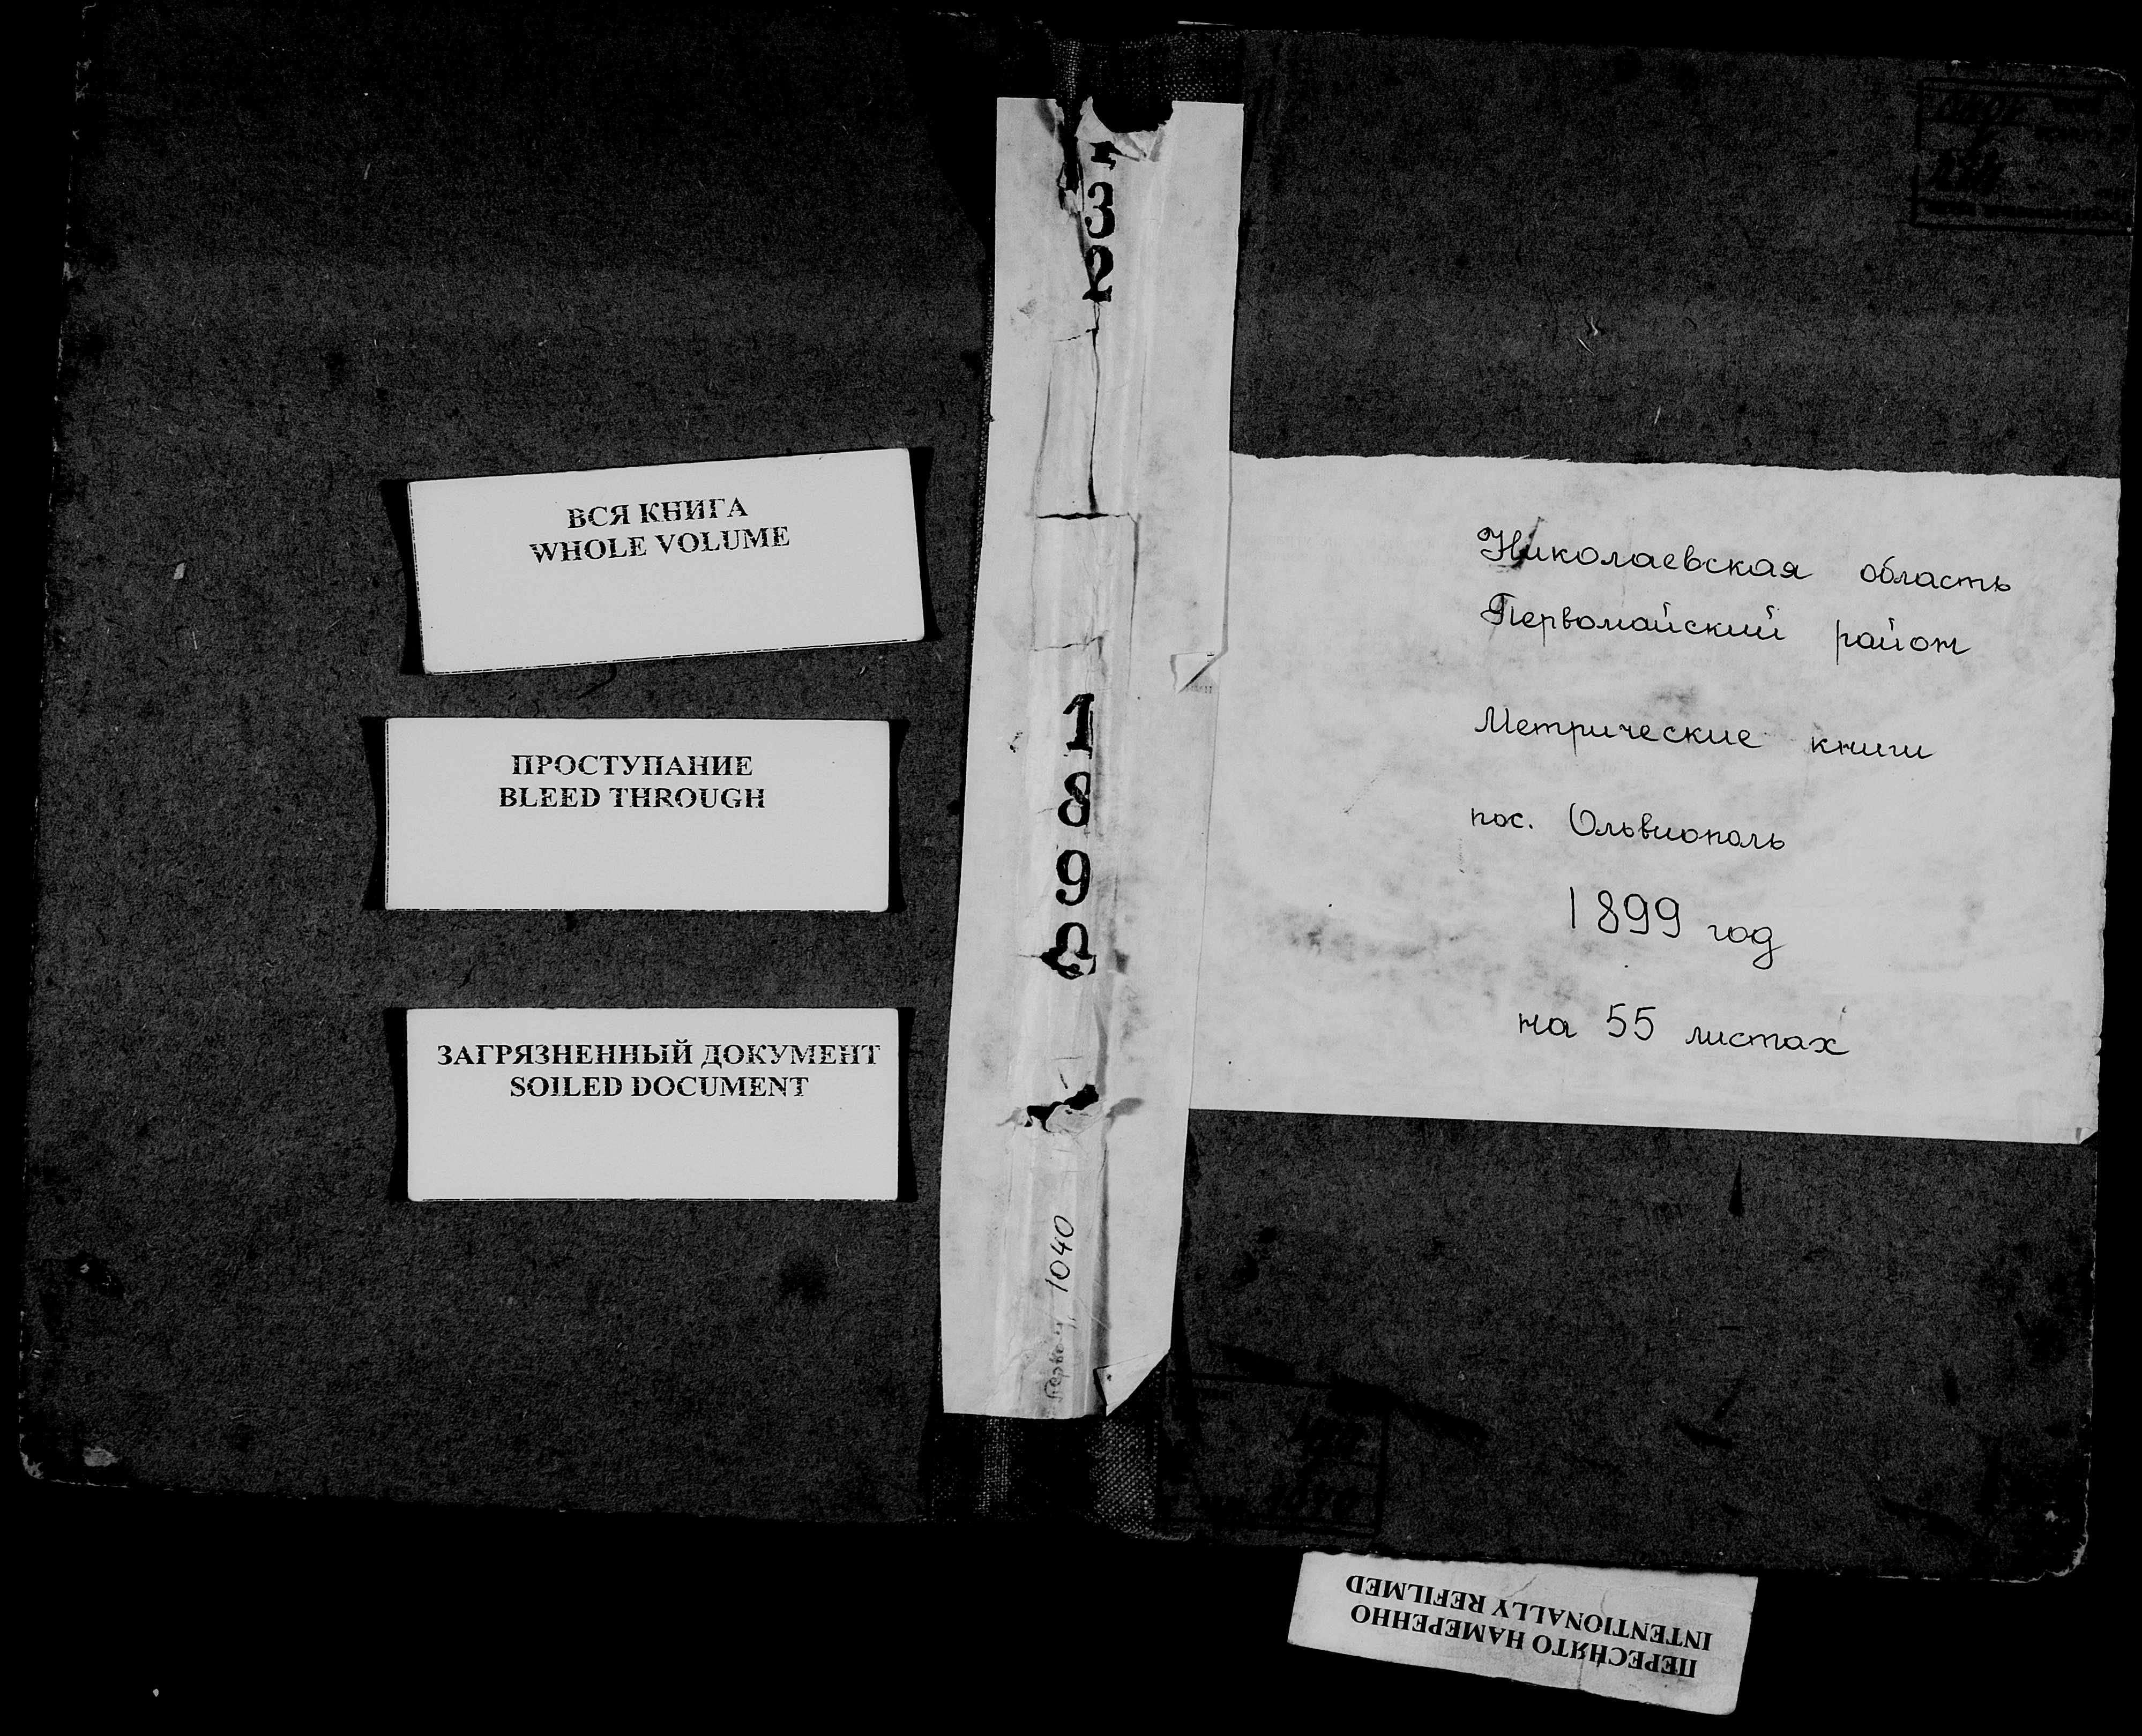 ВСЯ КНИГА
WHOLE VOLUME
ПРОСТУПАНИЕ
BLEED THROUGH
ЗАГРЯЗНЕННЫЙ ДОКУМЕНТ
SOILED DOCUMENT
32
189
1040
Николаевская область
Первомайский район
Метрические книги
пос. Ольвиополь
1899 год
на 55 листах
ПЕРЕСНЯТО НАМЕРЕННО
INTENTIONALLY REFILMED